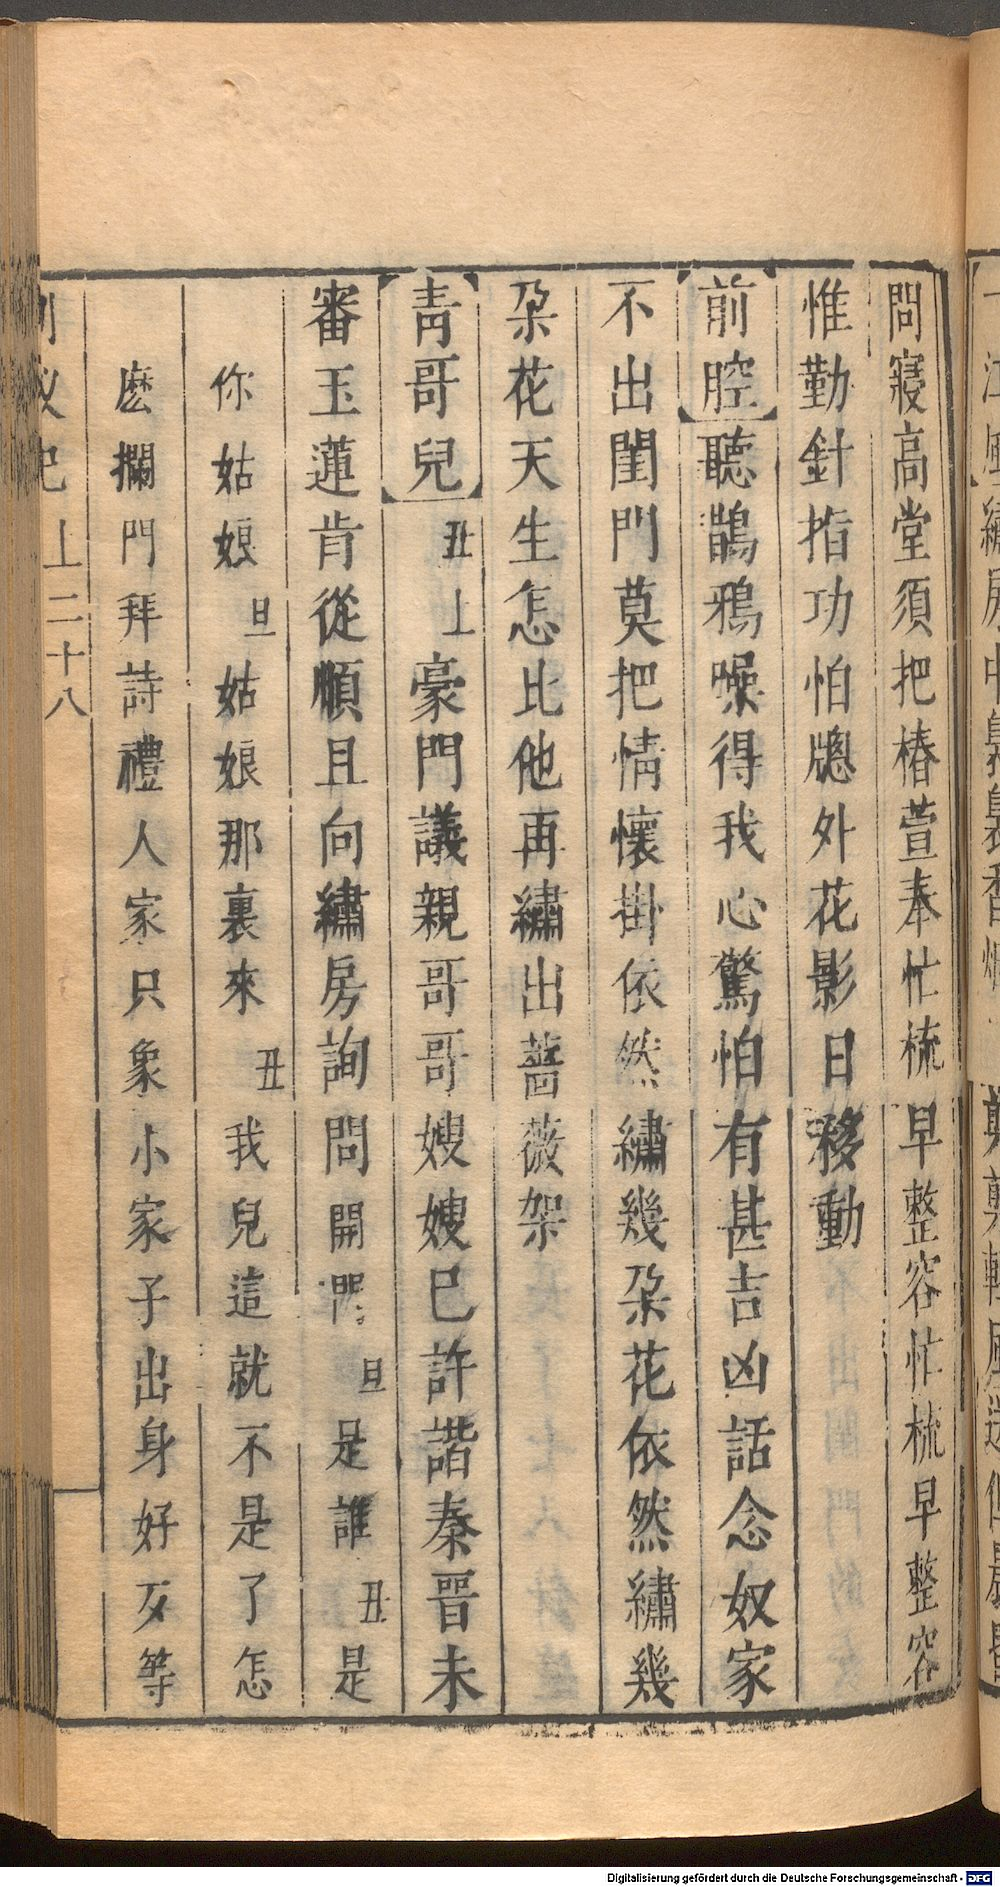 問寢高堂須把椿萱奉忙梳早整容忙梳早整容
惟勤針指功怕牕外花影日移動
【前腔】聽鵲鴉噪得我心驚怕有甚吉凶話念奴家
不出閨門莫把情懷掛依然繡幾朶花依然繡幾
朶花天生怎比他再繡出薔薇架
【青哥兒】丑上豪門議親哥哥嫂嫂已許諧秦晉未
審玉蓮肯從順且向繡房詢問開門旦是誰丑是
你姑娘旦姑娘那裏來丑我兒這就不是了怎
麽攔門拜詩禮人家只象小家子出身好歹等
上二十八
Digitalisierung gefördert durch die Deutsche Forschungsgemeinschaft - DFG